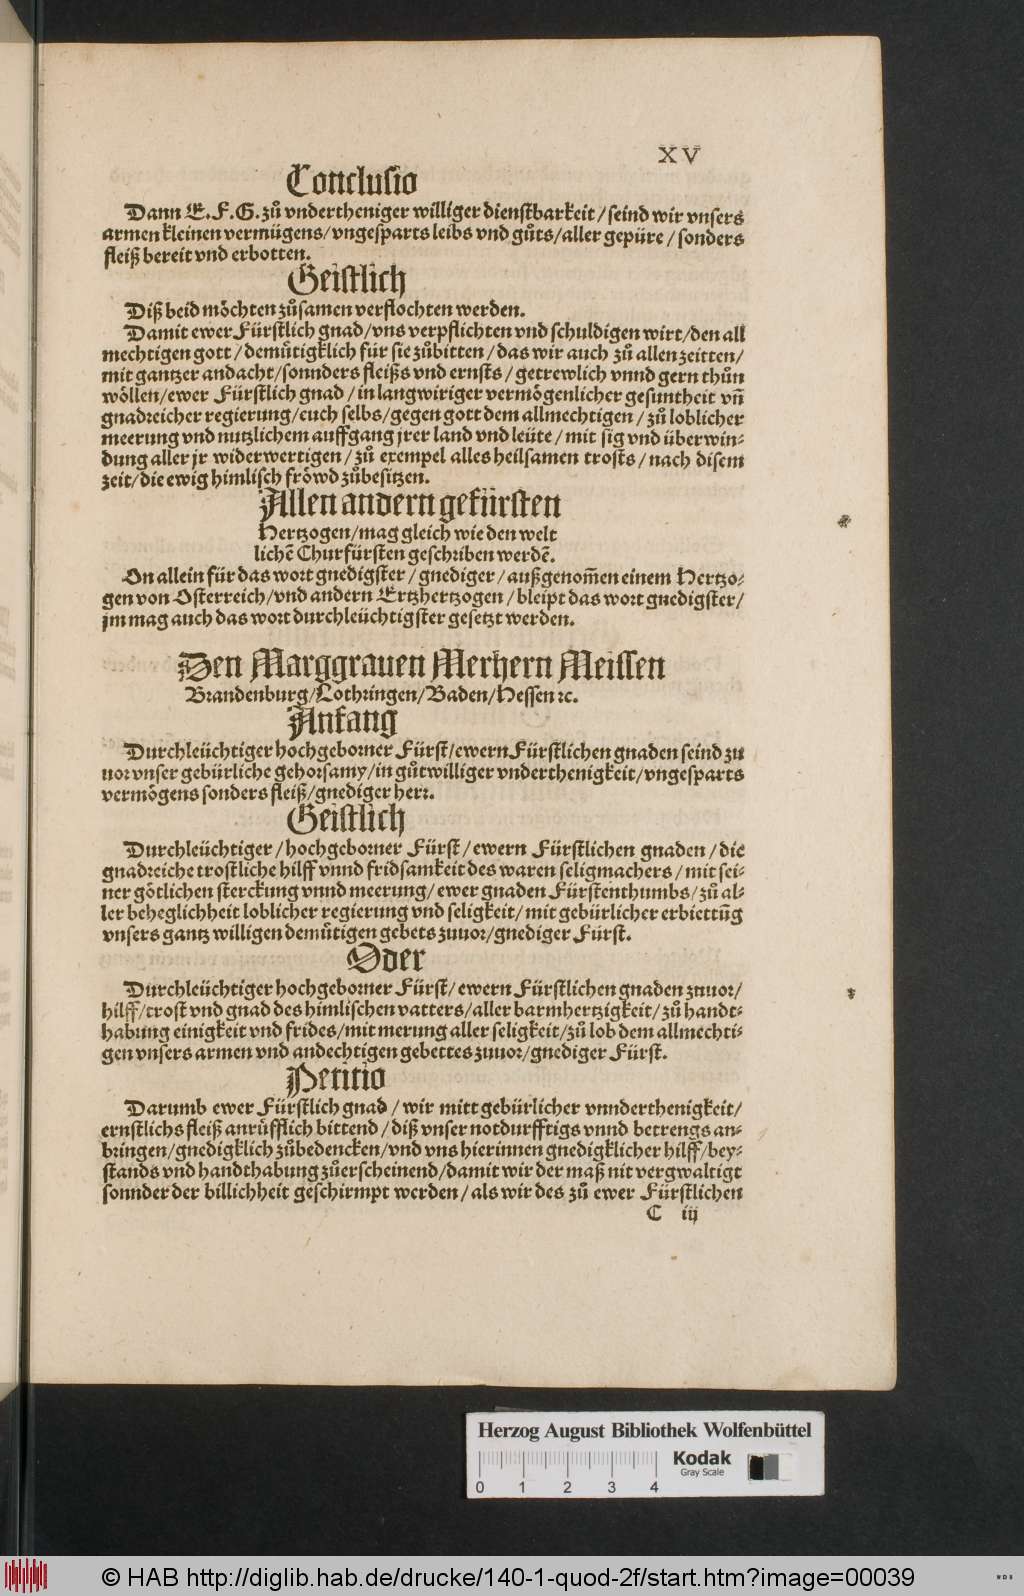 XV
Conclusio
Dann E.F.G. zů vndertheniger williger dienstbarkeit / seind wir vnsers
armen kleinen vermügens / vngesparts leibs vnd gůts / aller gepüre / sonders
fleiß bereit vnd erbotten.
Geistlich
Diß beid möchten zůsamen verflochten werden.
Damit ewer Fürstlich gnad / vns verpflichten vnd schuldigen wirt / den all
mechtigen gott / demütigklich für sie zůbitten / das wir auch zů allen zeitten /
mit gantzer andacht / sonnders fleißs vnd ernsts / getrewlich vnnd gern thůn
wöllen / ewer Fürstlich gnad / in langwiriger vermögenlicher gesuntheit vn̄
gnadreicher regierung / euch selbs / gegen gott dem allmechtigen / zů loblicher
meerung vnd nutzlichem auffgang jrer land vnd leüte / mit sig vnd überwin-
dung aller jr widerwertigen / zů exempel alles heilsamen trosts / nach disem
zeit / die ewig himlisch fröwd zůbesitzen.
Allen andern gefürsten
Hertzogen / mag gleich wie den welt
lichē Churfürsten geschriben werdē.
On allein für das wort gnedigster / gnediger / außgenom̄en einem Hertzo-
gen von Osterreich / vnd andern Ertzhertzogen / bleipt das wort gnedigster /
jm mag auch das wort durchleüchtigster gesetzt werden.
Den Marggrauen Merhern Meissen
Brandenburg / Lothringen / Baden / Hessen ꝛc.
Anfang
Durchleüchtiger hochgeborner Fürst / ewern Fürstlichen gnaden seind zu
uor vnser gebürliche gehorsamy / in gůtwilliger vnderthenigkeit / vngesparts
vermögens sonders fleiß / gnediger herr.
Geistlich
Durchleüchtiger / hochgeborner Fürst / ewern Fürstlichen gnaden / die
gnadreiche trostliche hilff vnnd fridsamkeit des waren seligmachers / mit sei-
ner götlichen sterckung vnnd meerung / ewer gnaden Fürstenthumbs / zů al-
ler beheglichheit loblicher regierung vnd seligkeit / mit gebürlicher erbiettūg
vnsers gantz willigen demütigen gebets zuuor / gnediger Fürst.
Oder
Durchleüchtiger hochgeborner Fürst / ewern Fürstlichen gnaden zuuor /
hilff / trost vnd gnad des himlischen vatters / aller barmhertzigkeit / zů handt-
habung einigkeit vnd frides / mit merung aller seligkeit / zů lob dem allmechti-
gen vnsers armen vnd andechtigen gebettes zuuor / gnediger Fürst.
Petitio
Darumb ewer Fürstlich gnad / wir mitt gebürlicher vnnderthenigkeit /
ernstlichs fleiß anrüfflich bittend / diß vnser notdurfftigs vnnd betrengs an-
bringen / gnedigklich zůbedencken / vnd vns hierinnen gnedigklicher hilff / bey-
stands vnd handthabung zůerscheinend / damit wir der maß nit vergwaltigt
sonnder der billichheit geschirmpt werden / als wir des zů ewer Fürstlichen
C iij
Herzog August Bibliothek Wolfenbüttel
Kodak
Gray Scale
0 1 2 3 4
© HAB http://diglib.hab.de/drucke/140-1-quod-2f/start.htm?image=00039